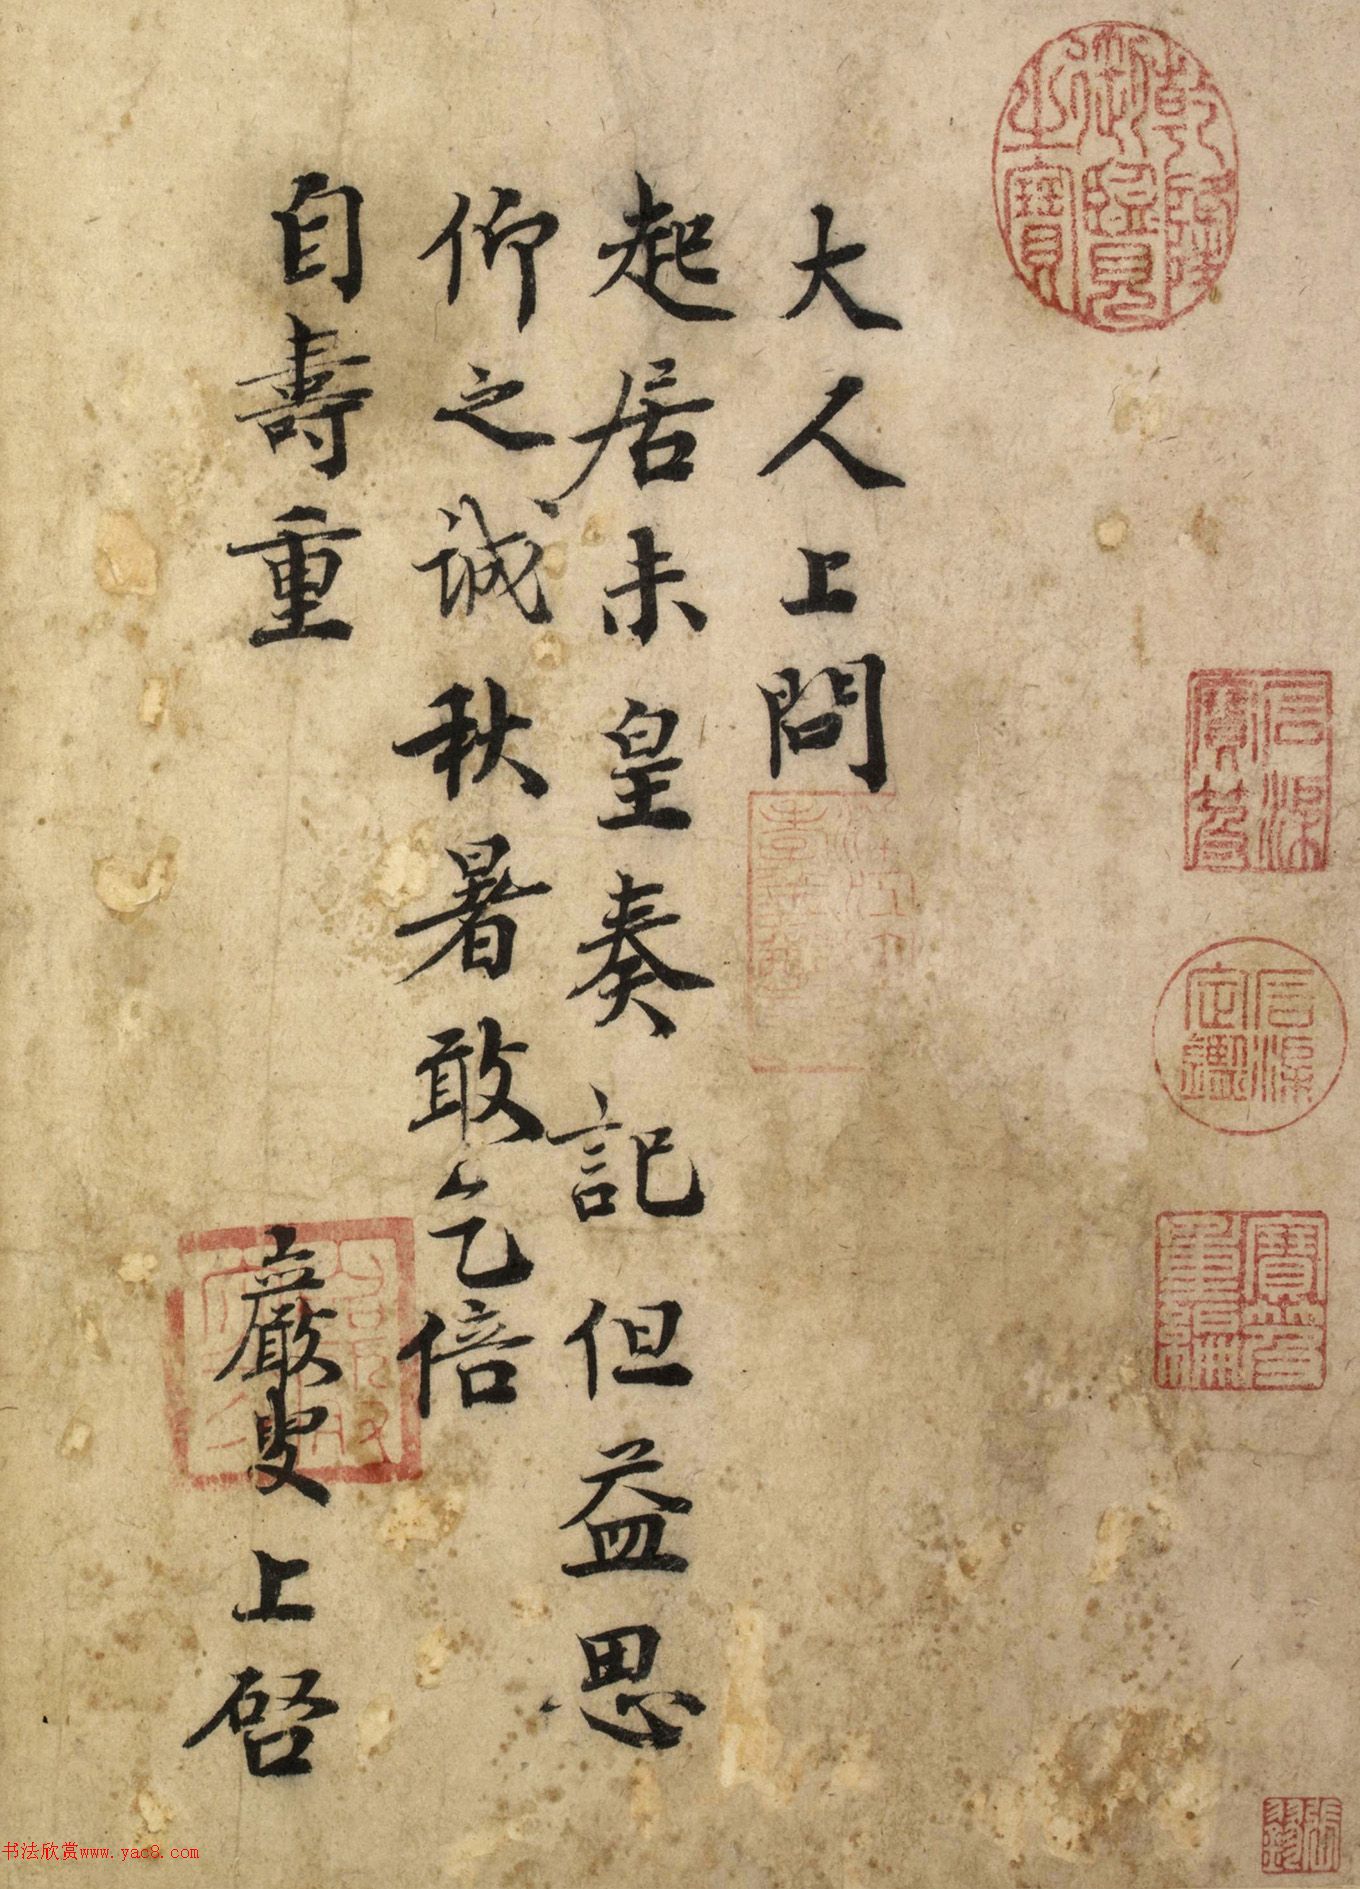 大人上問
起居未皇奏記但益思
仰之誠秋暑敢乞倍
自壽重
巖叟上啓
乾隆御覽之寶
石渠寶笈
石渠定鑑
寶笈重編
书法欣赏www.yac8.com